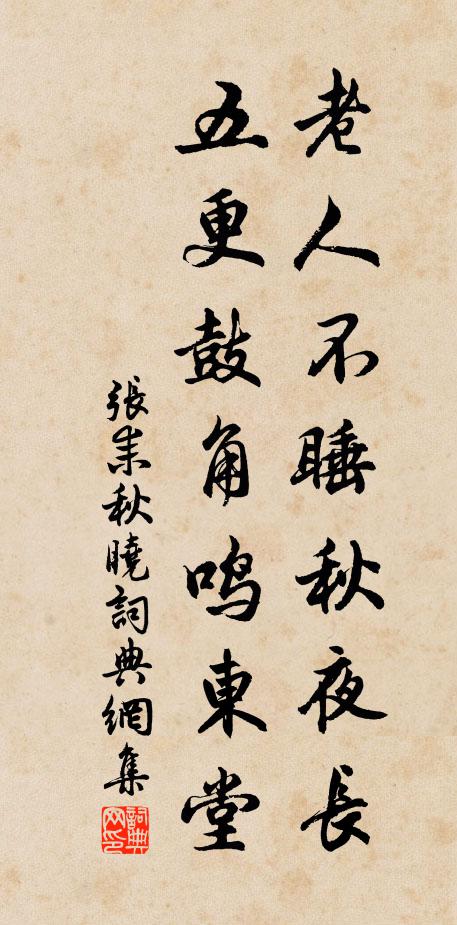 老人不睡秋夜長
五更鼓角鳴東堂
張耒秋曉詞典網集
詞典网印